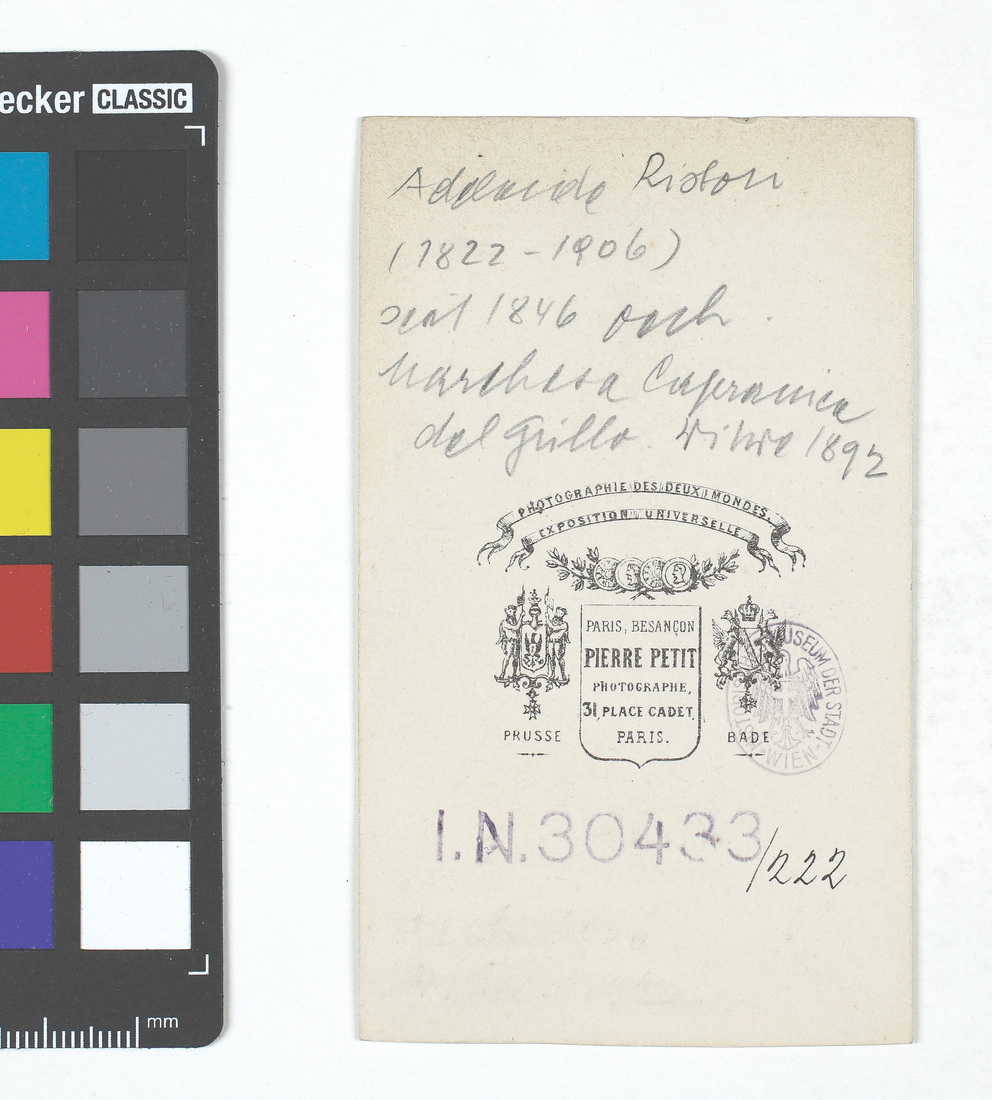 ecker CLASSIC
mm
Adelaide Ristori
(1822-1906)
seit 1846 auch
Marchesa Capranica
del Grillo. Witwe 1892
PHOTOGRAPHIE DES DEUX MONDES.
EXPOSITION UNIVERSELLE.
PARIS, BESANÇON
PIERRE PETIT
PHOTOGRAPHE,
31, PLACE CADET,
PARIS.
PRUSSE
BADE
MUSEUM DER STADT WIEN
I.N.30433/222